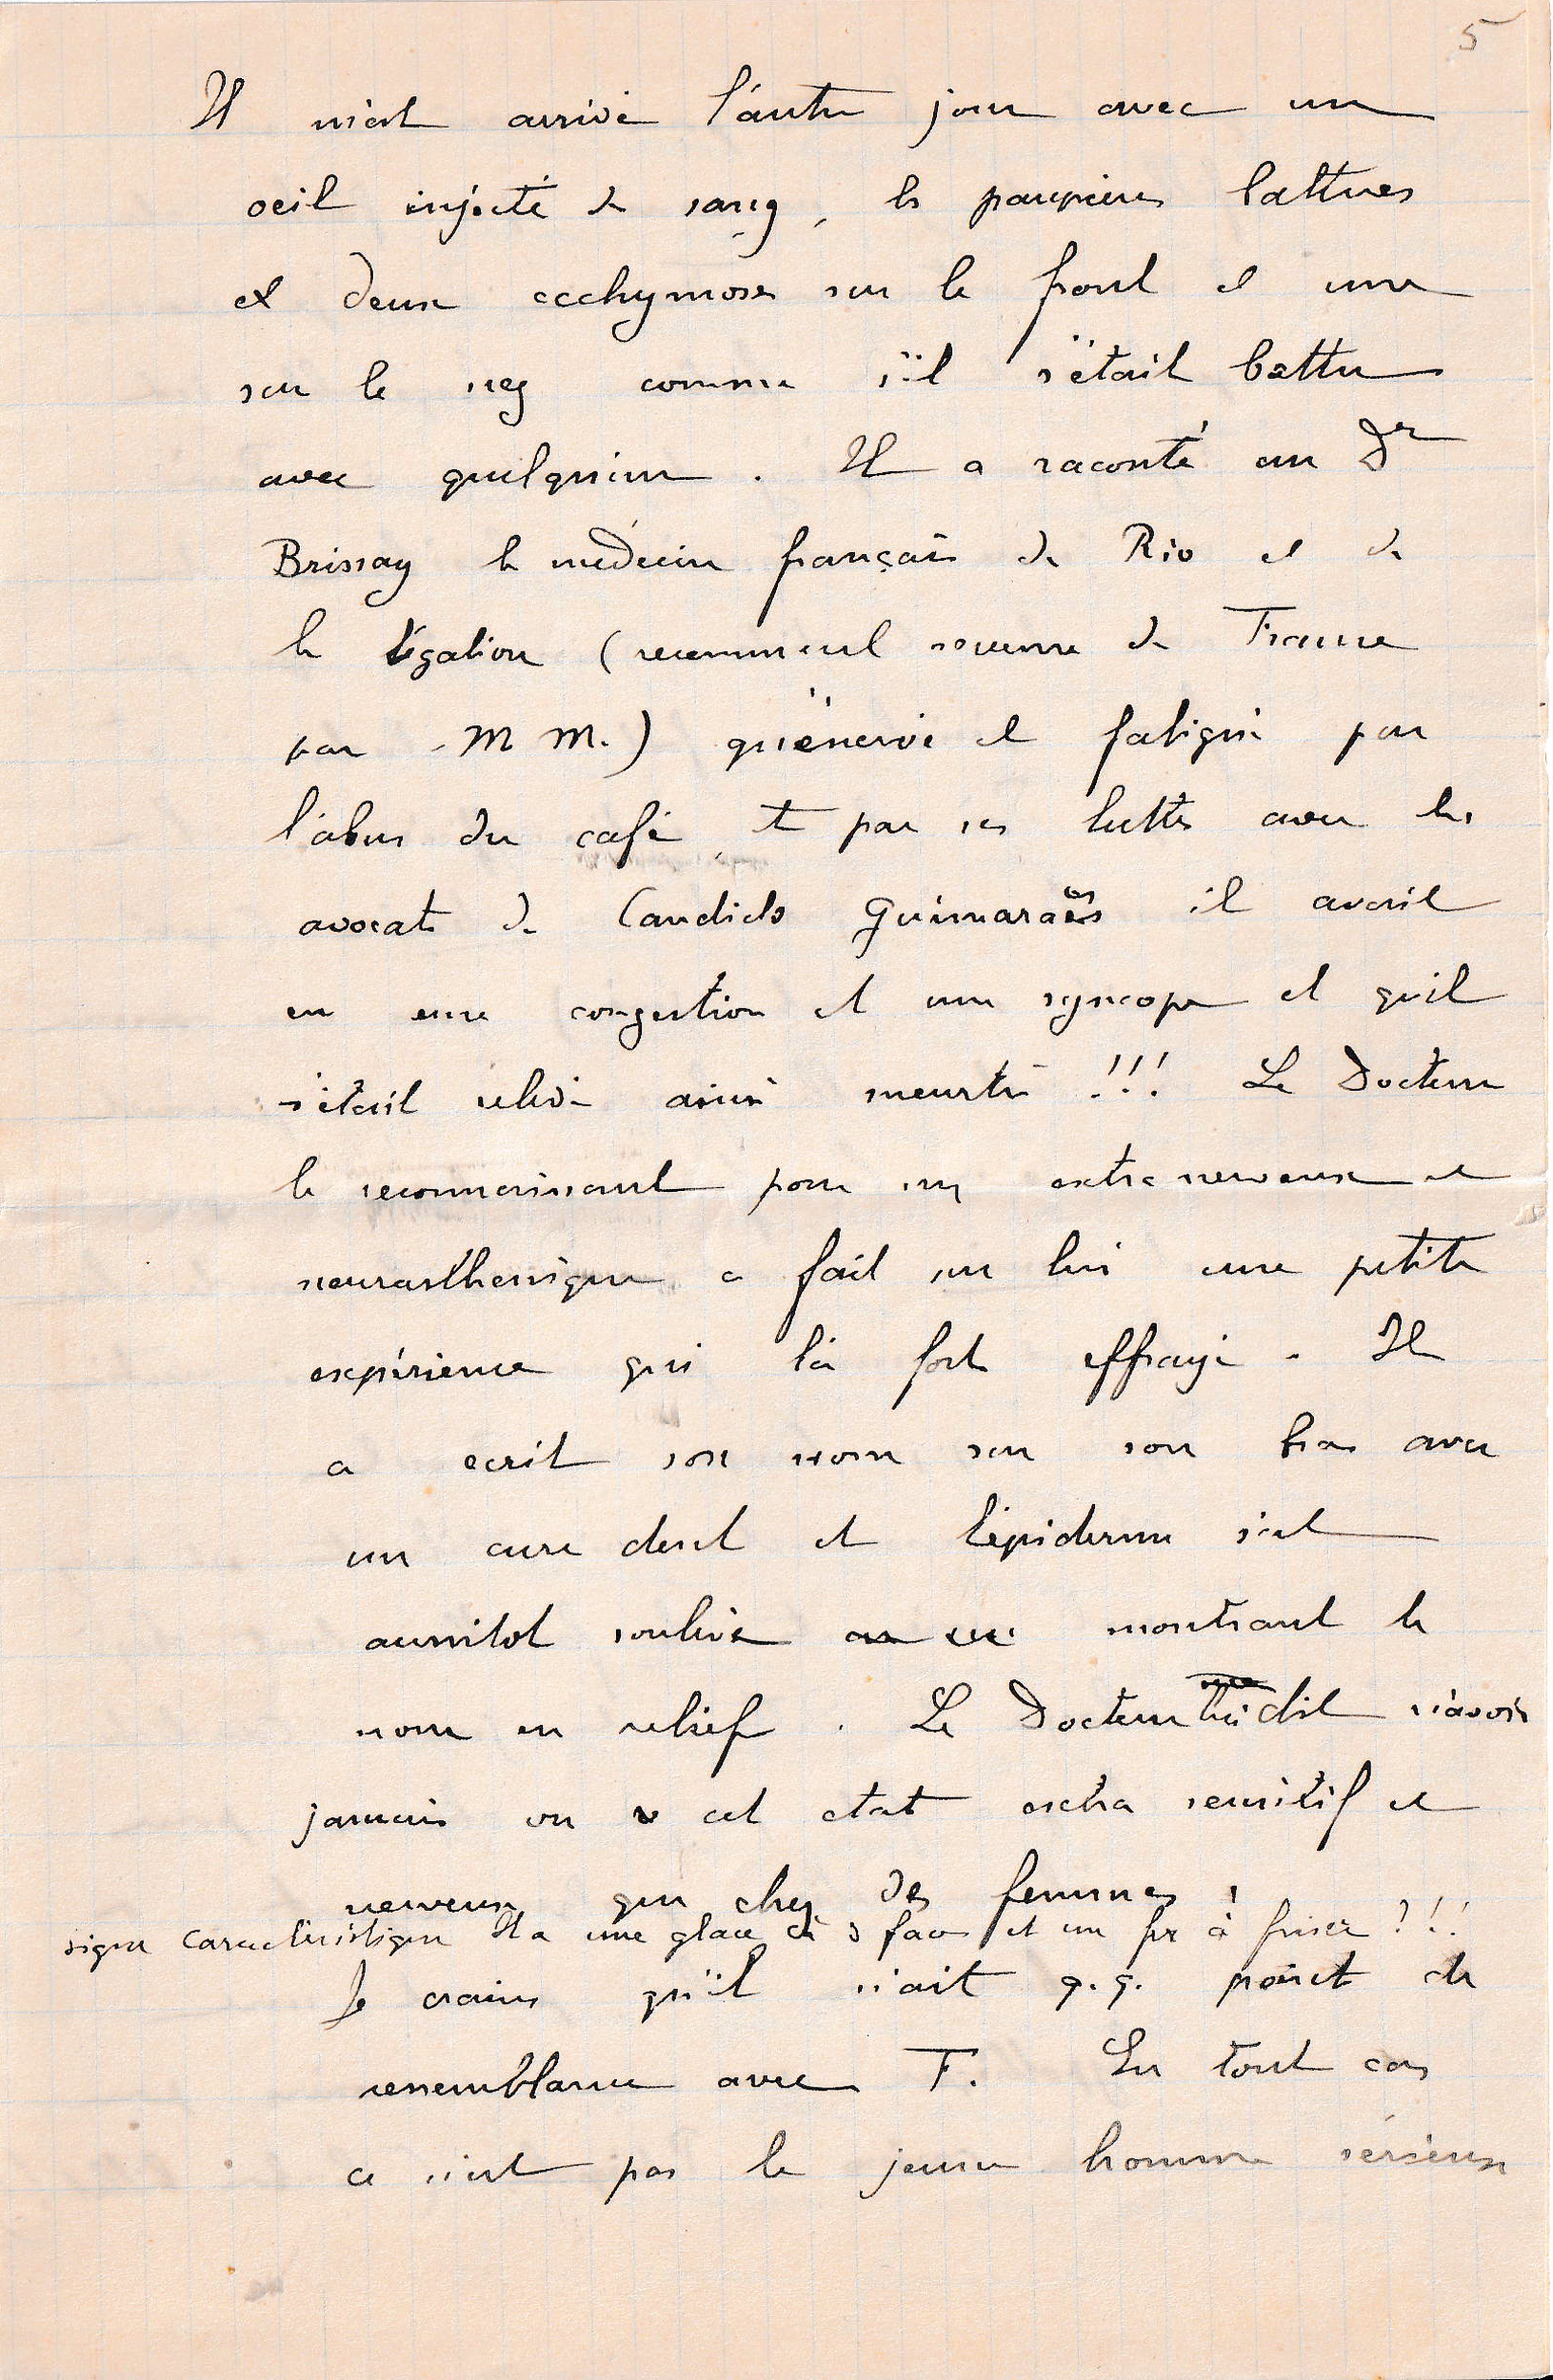 5
Il m'est arrivé l'autre jour avec un
oeil injecté de sang, les paupieres battues
et deux ecchymoses sur le front et une
sur le nez comme s'il s'était battu
avec quelqu'un. Il a raconté au Dr
Brissay le médecin français de Rio et de
la légation (recemment revenu de France
par M M.) qu'énervé et fatigué par
l'abus du café, et par ses luttes avec les
avocats de Candido Guimaraës il avait
eu une congestion et une syncope et qu'il
s'était relevé ainsi meurtri !!! Le Docteur
le reconnaissant pour un extra nerveux et
neurasthenique a fait sur lui une petite
expérience qui l'a fort effrayé. Il
a ecrit son nom sur son bras avec
un cure dent et l'épiderme s'est
aussitot soulevé montrant le
nom en relief. Le Docteur lui dit n'avoir
jamais vu cet etat extra sensitif et
nerveux que chez des femmes ;
signe caracteristique Il a une glace à 3 faces et un fer à friser ? ! !
Je crains qu'il n'ait q.q. point de
ressemblance avec F. En tout cas
ce n'est pas le jeune homme sérieux